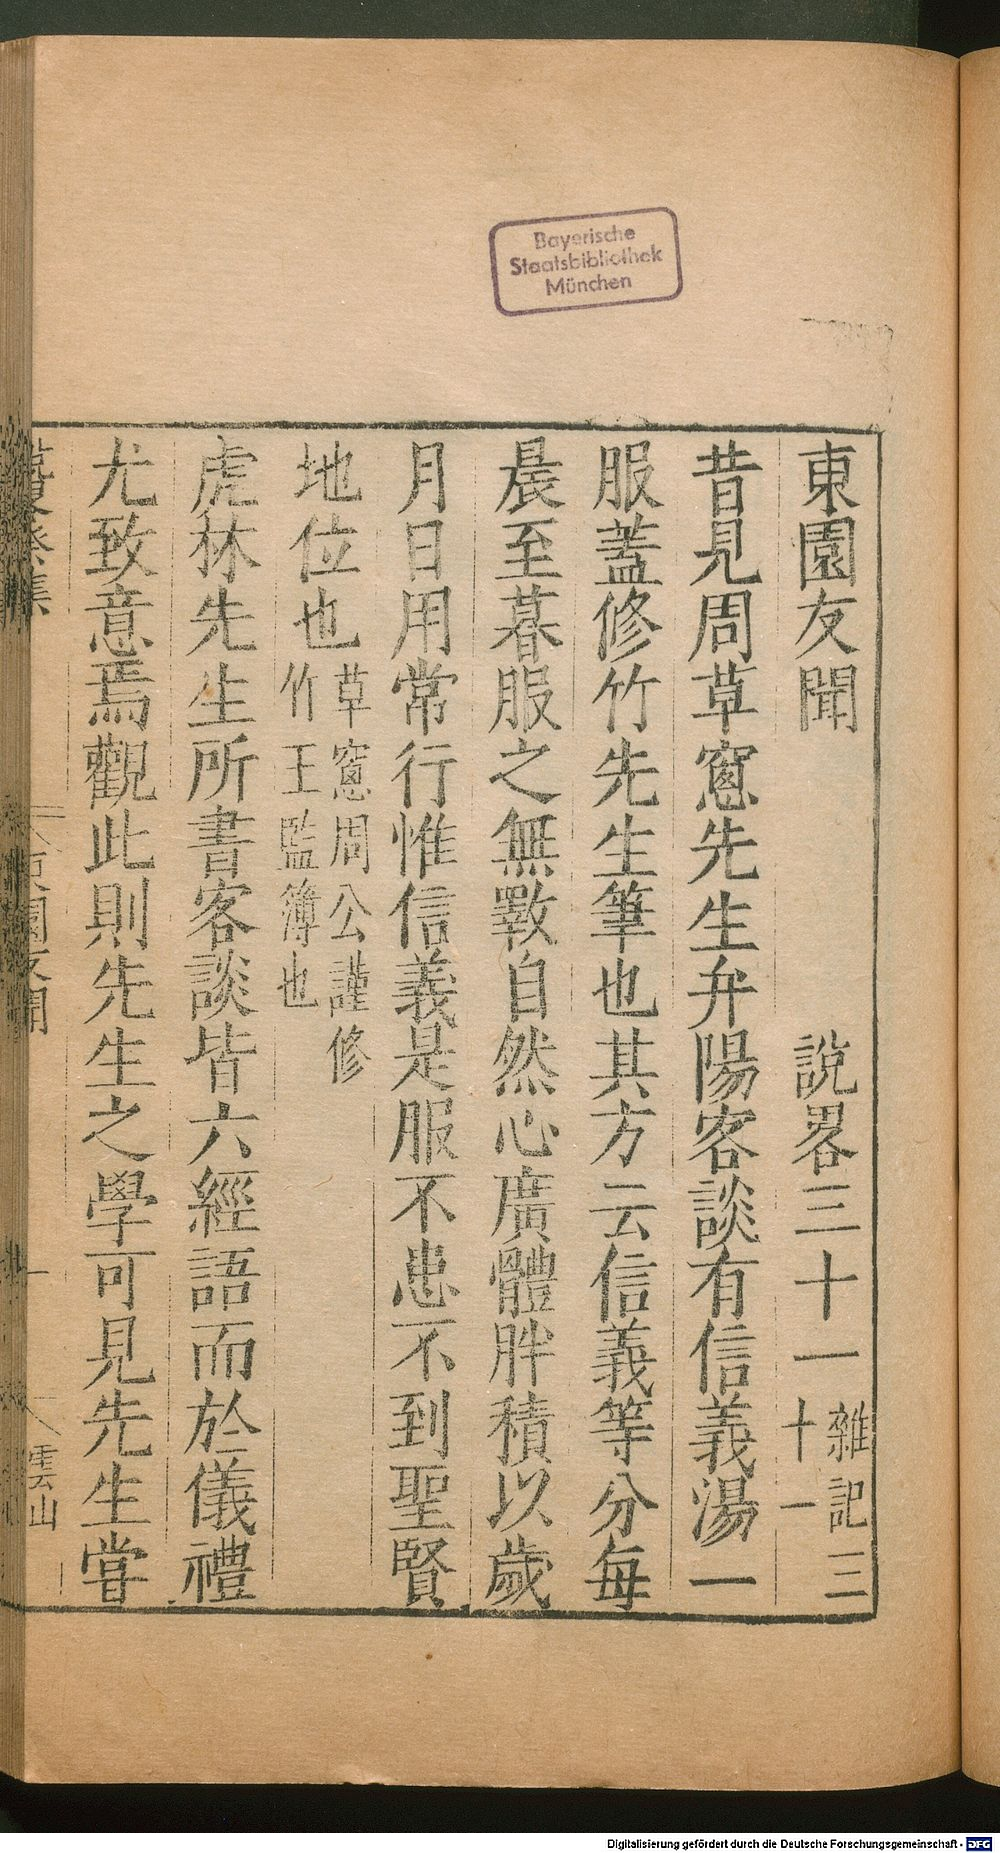 Bayerische
Staatsbibliothek
München
東園友聞 說畧三十一 雜記三
十一
昔見周草窻先生弁陽客談有信義湯一
服蓋修竹先生筆也其方云信義等分每
晨至暮服之無斁自然心廣體胖積以歲
月日用常行惟信義是服不患不到聖賢
地位也 草窻周公謹修
竹王監簿也
虎林先生所書客談皆六經語而於儀禮
尤致意焉觀此則先生之學可見先生嘗
東園友聞
一
雲山
Digitalisierung gefördert durch die Deutsche Forschungsgemeinschaft - DFG